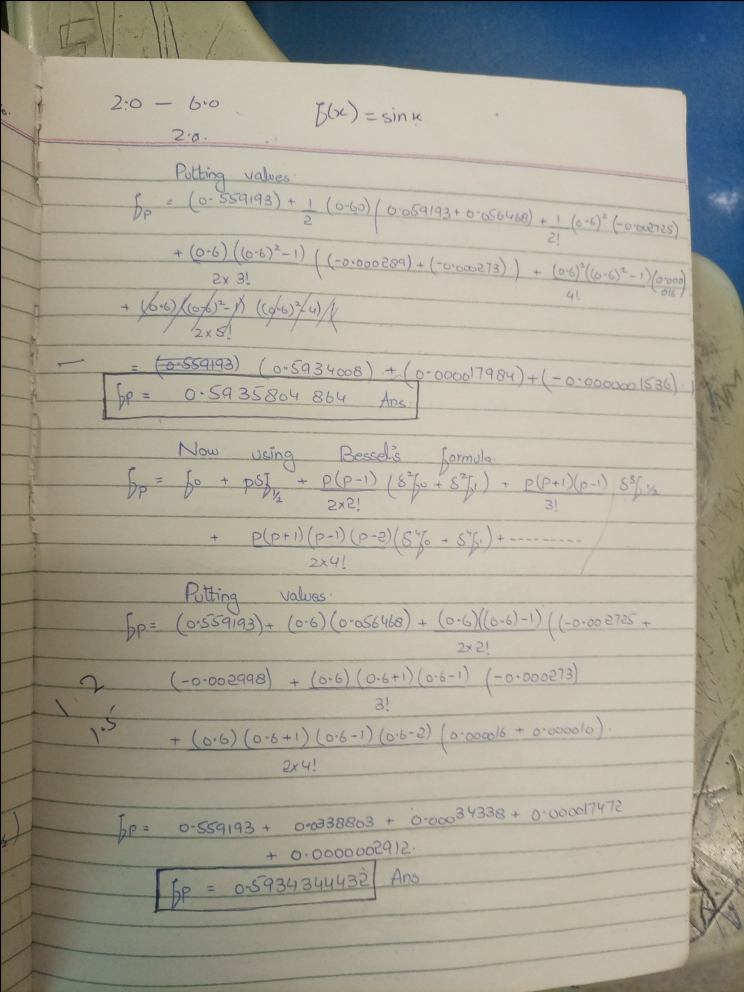 2.0 — 6.0 f(x) = sin x
2.0.
Putting values
fp = (0.559193) + 1/2 (0.60) ( 0.059193 + 0.056468) + 1/2! (0.6)² (-0.002725)
+ (0.6) ((0.6)² - 1)/2x3! ((-0.000289) + (-0.000273)) + (0.6)² ((0.6)² - 1)/4! (0.000016)
+ (0.6) ((0.6)² - 1) ((0.6)² - 4)/2x5! (
— = (0.559193) (0.5934008) + (0.000017984) + (-0.0000001536).
fp = 0.5935804864 Ans.
Now using Bessel's formula.
fp = f0 + pδf1/2 + p(p-1)/2x2! (δ²f0 + δ²f1) + p(p+1)(p-1)/3! δ³f1/2
+ p(p+1)(p-1)(p-2)/2x4! (δ⁴f0 + δ⁴f1) + ----------
Putting values.
fp = (0.559193) + (0.6)(0.056468) + (0.6)((0.6)-1)/2x2! ((-0.002725 +
(-0.002998) + (0.6)(0.6+1)(0.6-1)/3! (-0.000273)
2
1 1.5
+ (0.6)(0.6+1)(0.6-1)(0.6-2)/2x4! (0.000016 + 0.000010).
fp = 0.559193 + 0.0338803 + 0.00034338 + 0.000017472
+ 0.0000002912.
fp = 0.5934344432 Ans